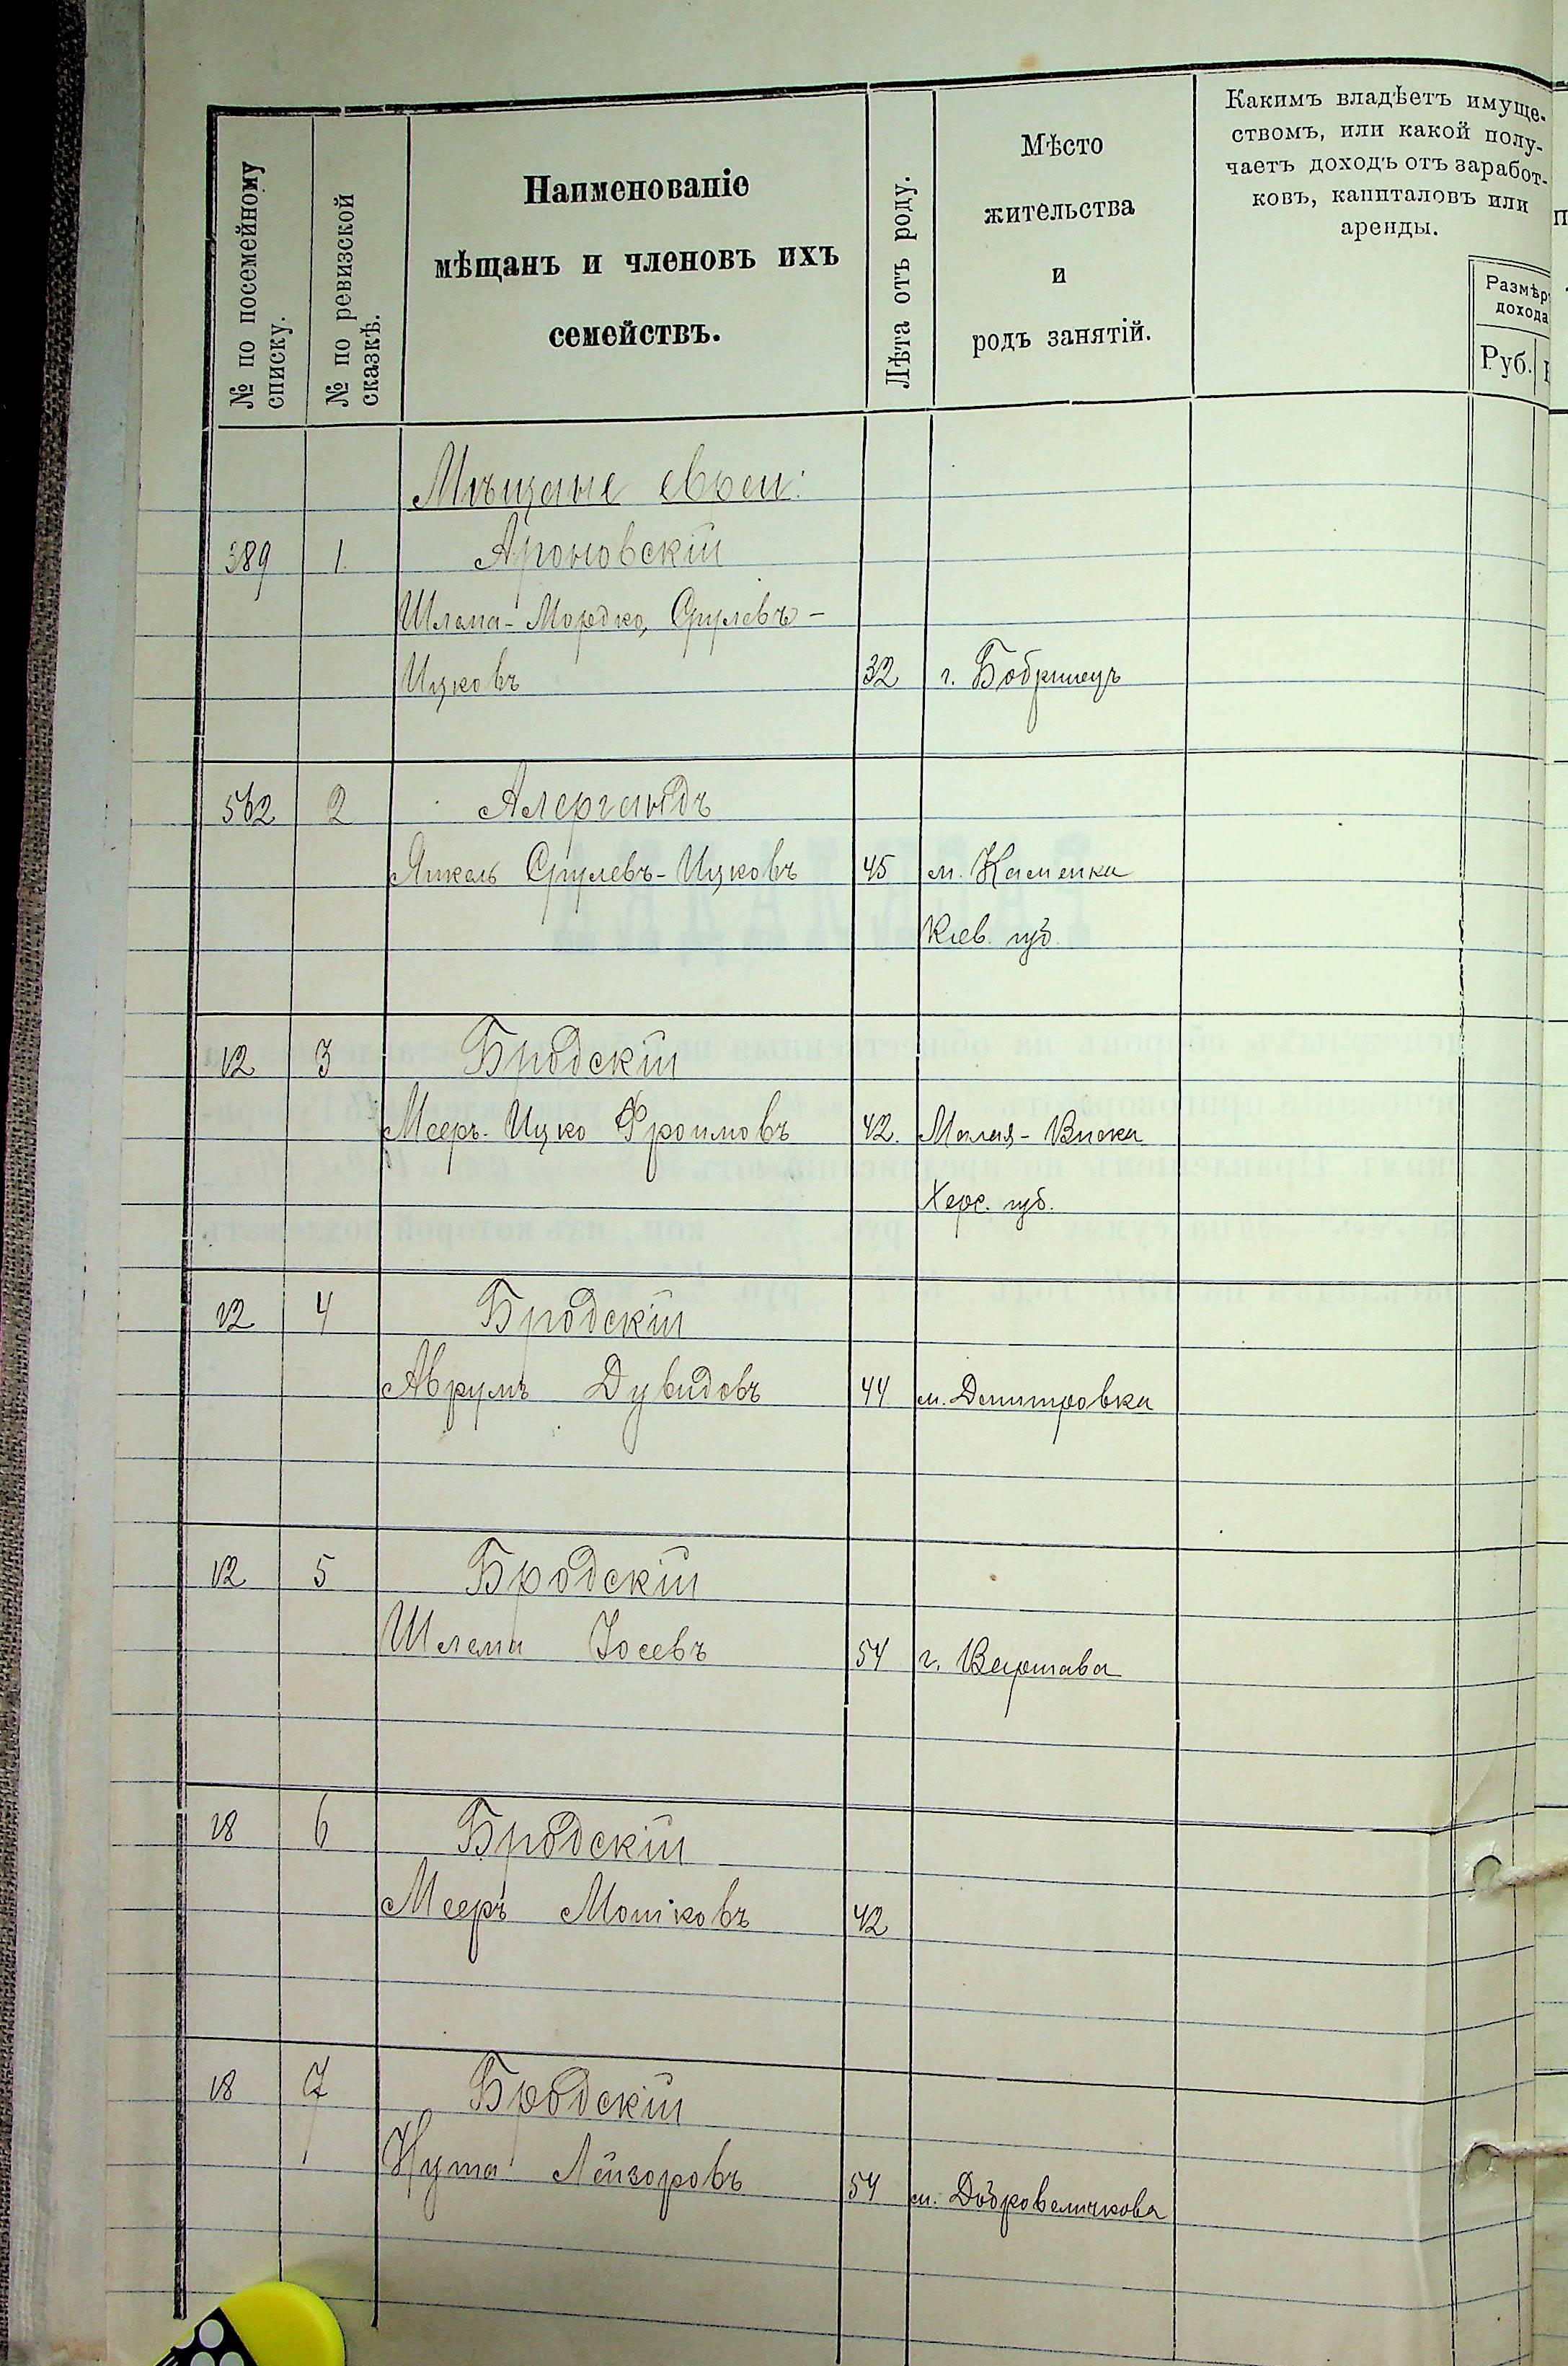 № по посемейному списку.
№ по ревизской сказкѣ.
Наименованіе
мѣщанъ и членовъ ихъ
семействъ.
Лѣта отъ роду.
Мѣсто
жительства
и
родъ занятій.
Какимъ владѣетъ имуще-
ствомъ, или какой полу-
чаетъ доходъ отъ заработ-
ковъ, капиталовъ или
аренды.
Размѣр
дохода
Руб.
Мѣщане евреи:
389 1. Ароновскій
Шлема-Мордко, Срулевъ-
Ицковъ 32 г. Бобринецъ
562 2 Алергандъ
Янкель Срулевъ-Ицковъ 45 м. Каменка
Кіев. губ.
12 3 Бродскій
Мееръ-Ицко Фроимовъ 42. Малая-Виска
Херс. губ.
12 4 Бродскій
Аврумъ Дувидовъ 44 м. Дмитровка
12 5 Бродскій
Шлема Іосевъ 54 г. Варшава
18 6 Бродскій
Мееръ Мошковъ 42
18 7 Бродскій
Нута Лейзоровъ 54 м. Добровеличкова